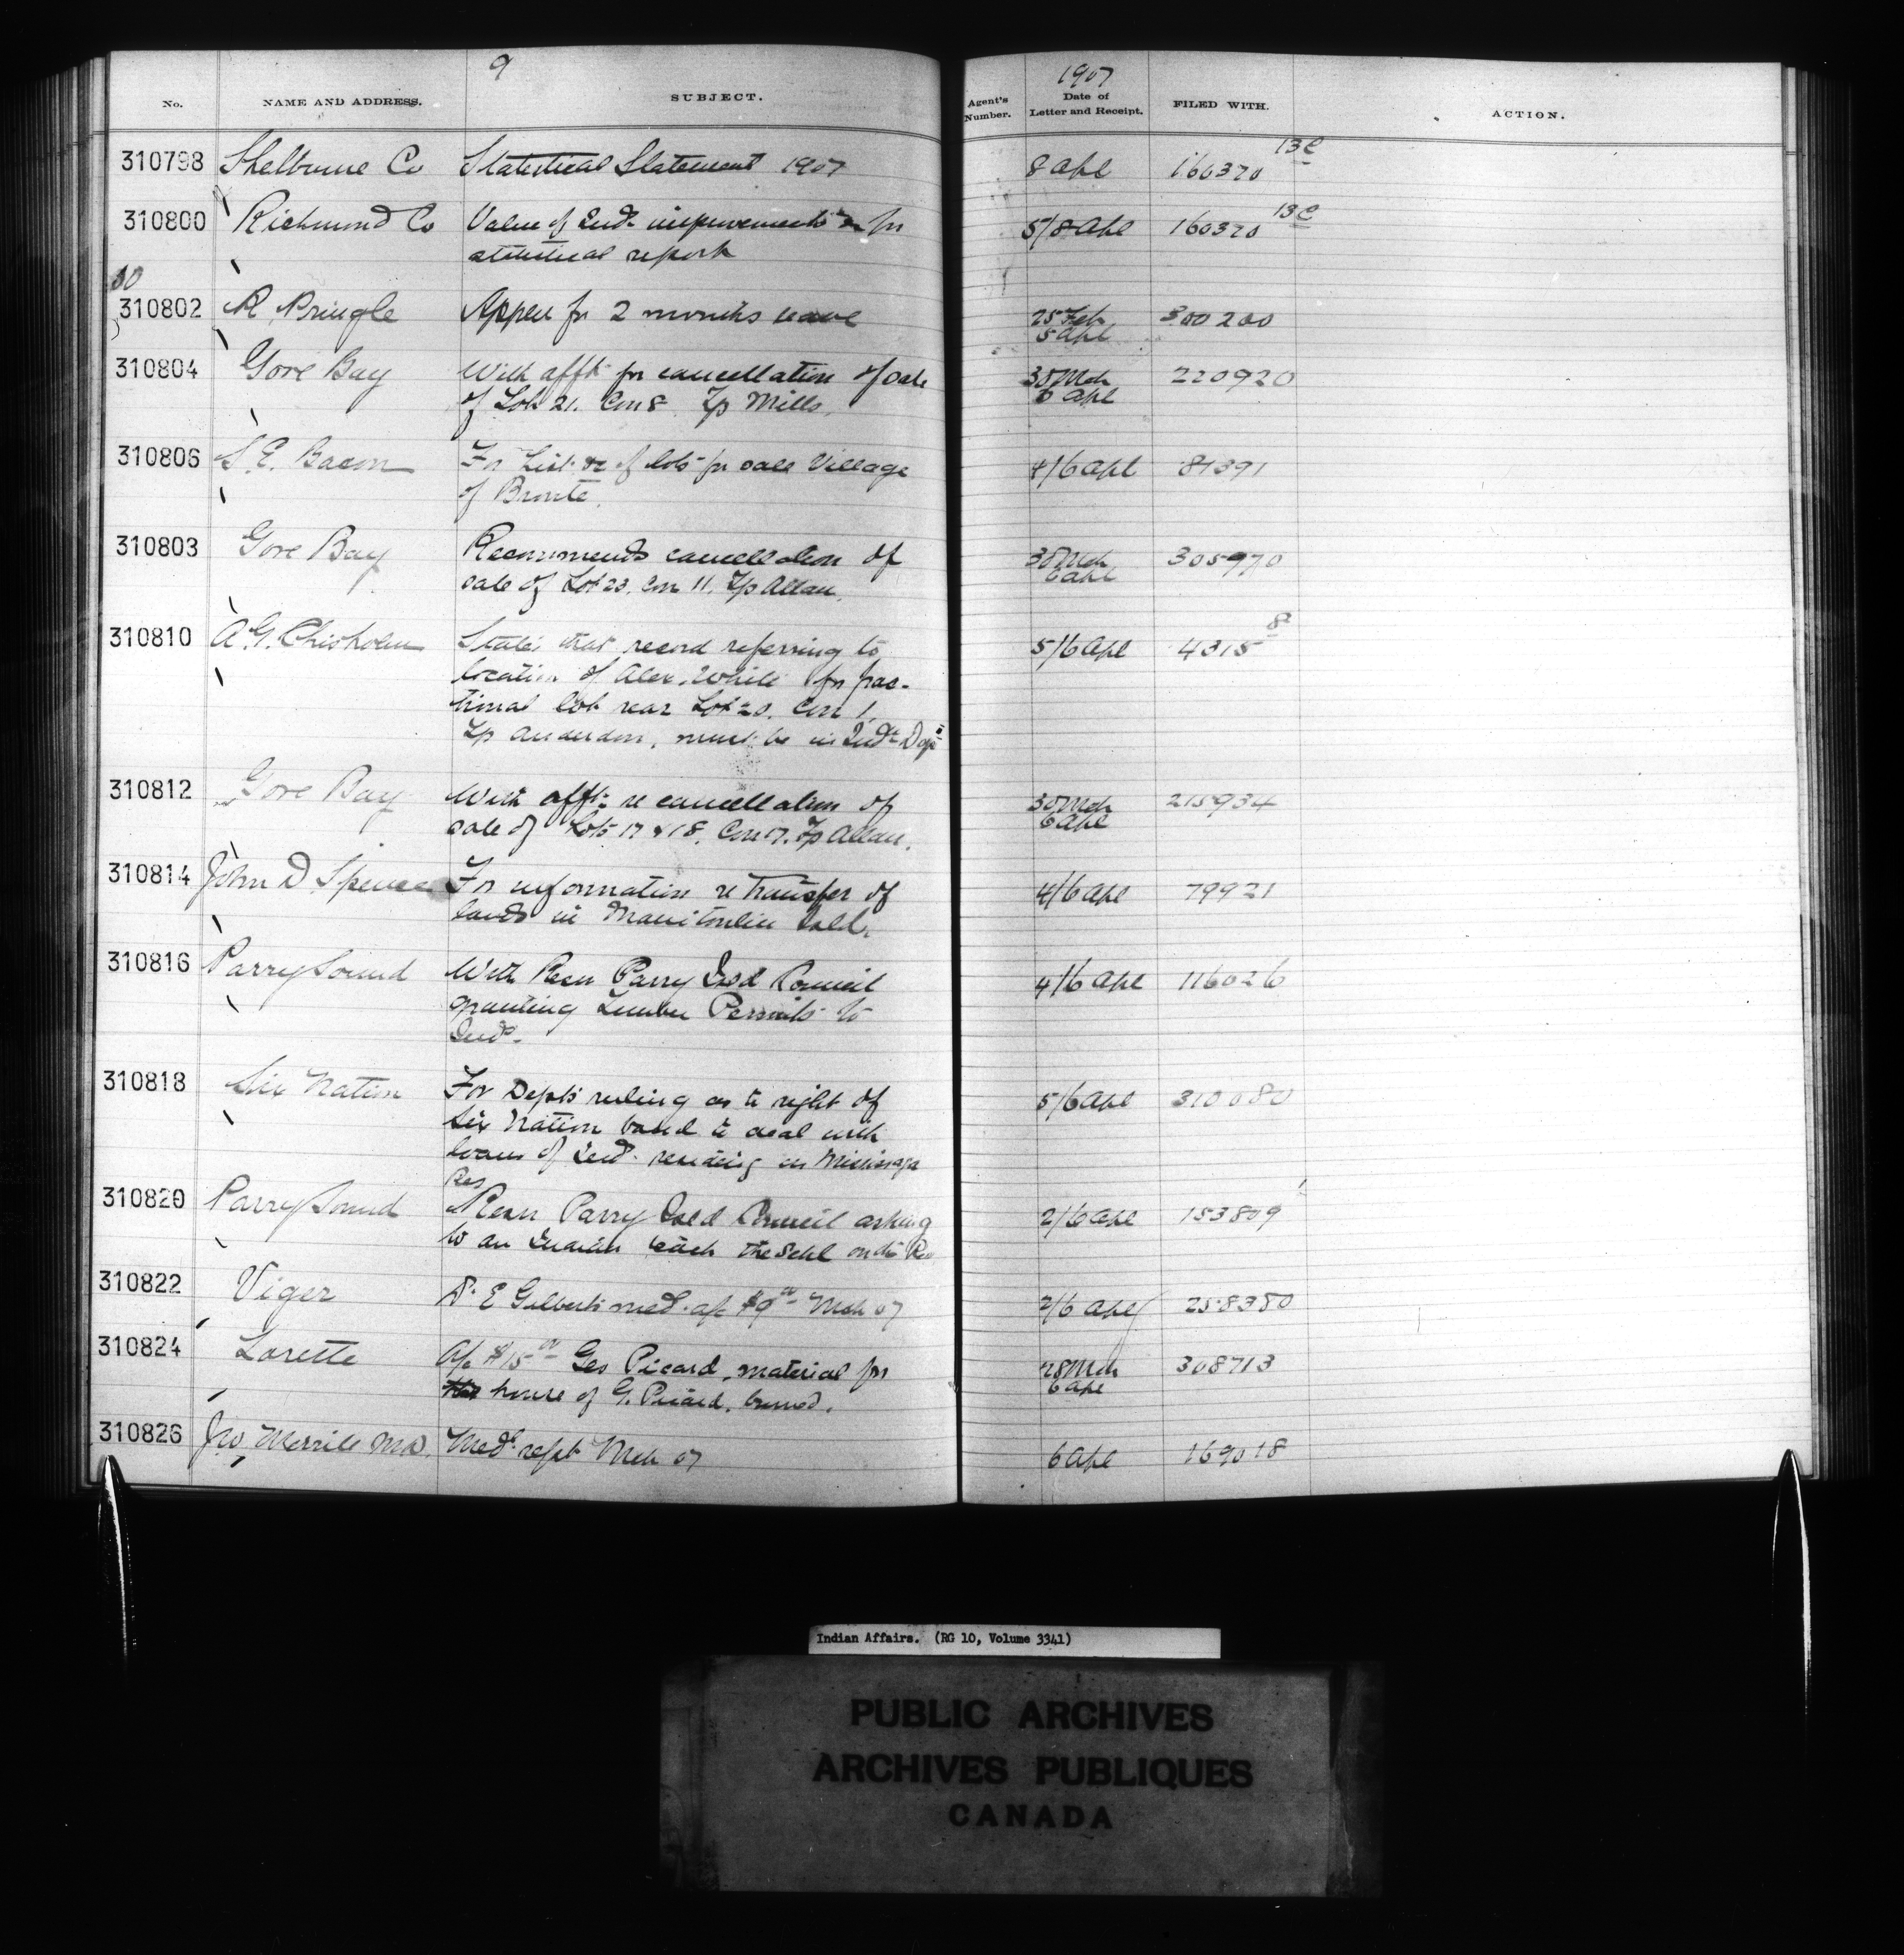 9
No. NAME AND ADDRESS. SUBJECT. Agent's Number. 1907 Date of Letter and Receipt. FILED WITH. ACTION.
310798 Shelburne Co Statistical Statement 1907 8 Apl 160370 13C
310800 Richmond Co Value of Indn improvements for 5/8 Apl 160370 13C
statistical report
310802 R Pringle Appln for 2 months leave 25 Feb 300200
5 Apl
310804 Gore Bay With afft for cancellation of sale 30 Mch 220920
of Lot 21. Con 8 Tp Mills. 6 Apl
310806 S. E. Bacon For list &c of lots for sale Village 4/6 Apl 81391
of Bronte.
310803 Gore Bay Recommends cancellation of 30 Mch 305970
sale of Lot 23. Con 11. Tp Allan. 6 Apl
310810 A. G. Chisholm States that record referring to 5/6 Apl 4315 8
location of Alex. White for frac-
tional lot rear Lot 20. Con 1.
Tp Anderdon, must be in Indn Dept
310812 Gore Bay With afft re cancellation of 30 Mch 215934
sale of Lots 17 & 18. Con 7. Tp Allan. 6 Apl
310814 John D. Spence For information re transfer of 4/6 Apl 79921
lands in Manitoulin Isld.
310816 Parry Sound With Resn Parry Isld Council 4/6 Apl 116026
granting Lumber Permits to
Inds.
310818 Six Nation For Depts ruling as to right of 5/6 Apl 310080
Six Nation band to deal with
loans of Inds. residing on Mississaga
Res
310820 Parry Sound Resn Parry Isld Council asking 2/6 Apl 153809
to an Indian teach the Schl on the Res
310822 Viger D. E Gilberts med. a/c $9.00 Mch 07 2/6 Apl 258380
310824 Lorette A/c $15.00 Geo Picard, material for 28 Mch 308713
house of G. Picard, burned. 6 Apl
310826 Jno Merrill MD. Medl rept Mch 07 6 Apl 169018
Indian Affairs. (RG 10, Volume 3341)
PUBLIC ARCHIVES
ARCHIVES PUBLIQUES
CANADA